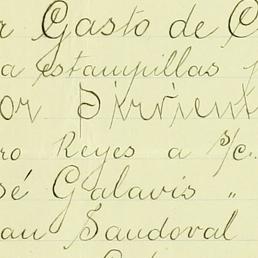 r Gasto de C
a estampillas p
or Sirvient
ro Reyes a s/c.
sé Galavis "
an Sandoval